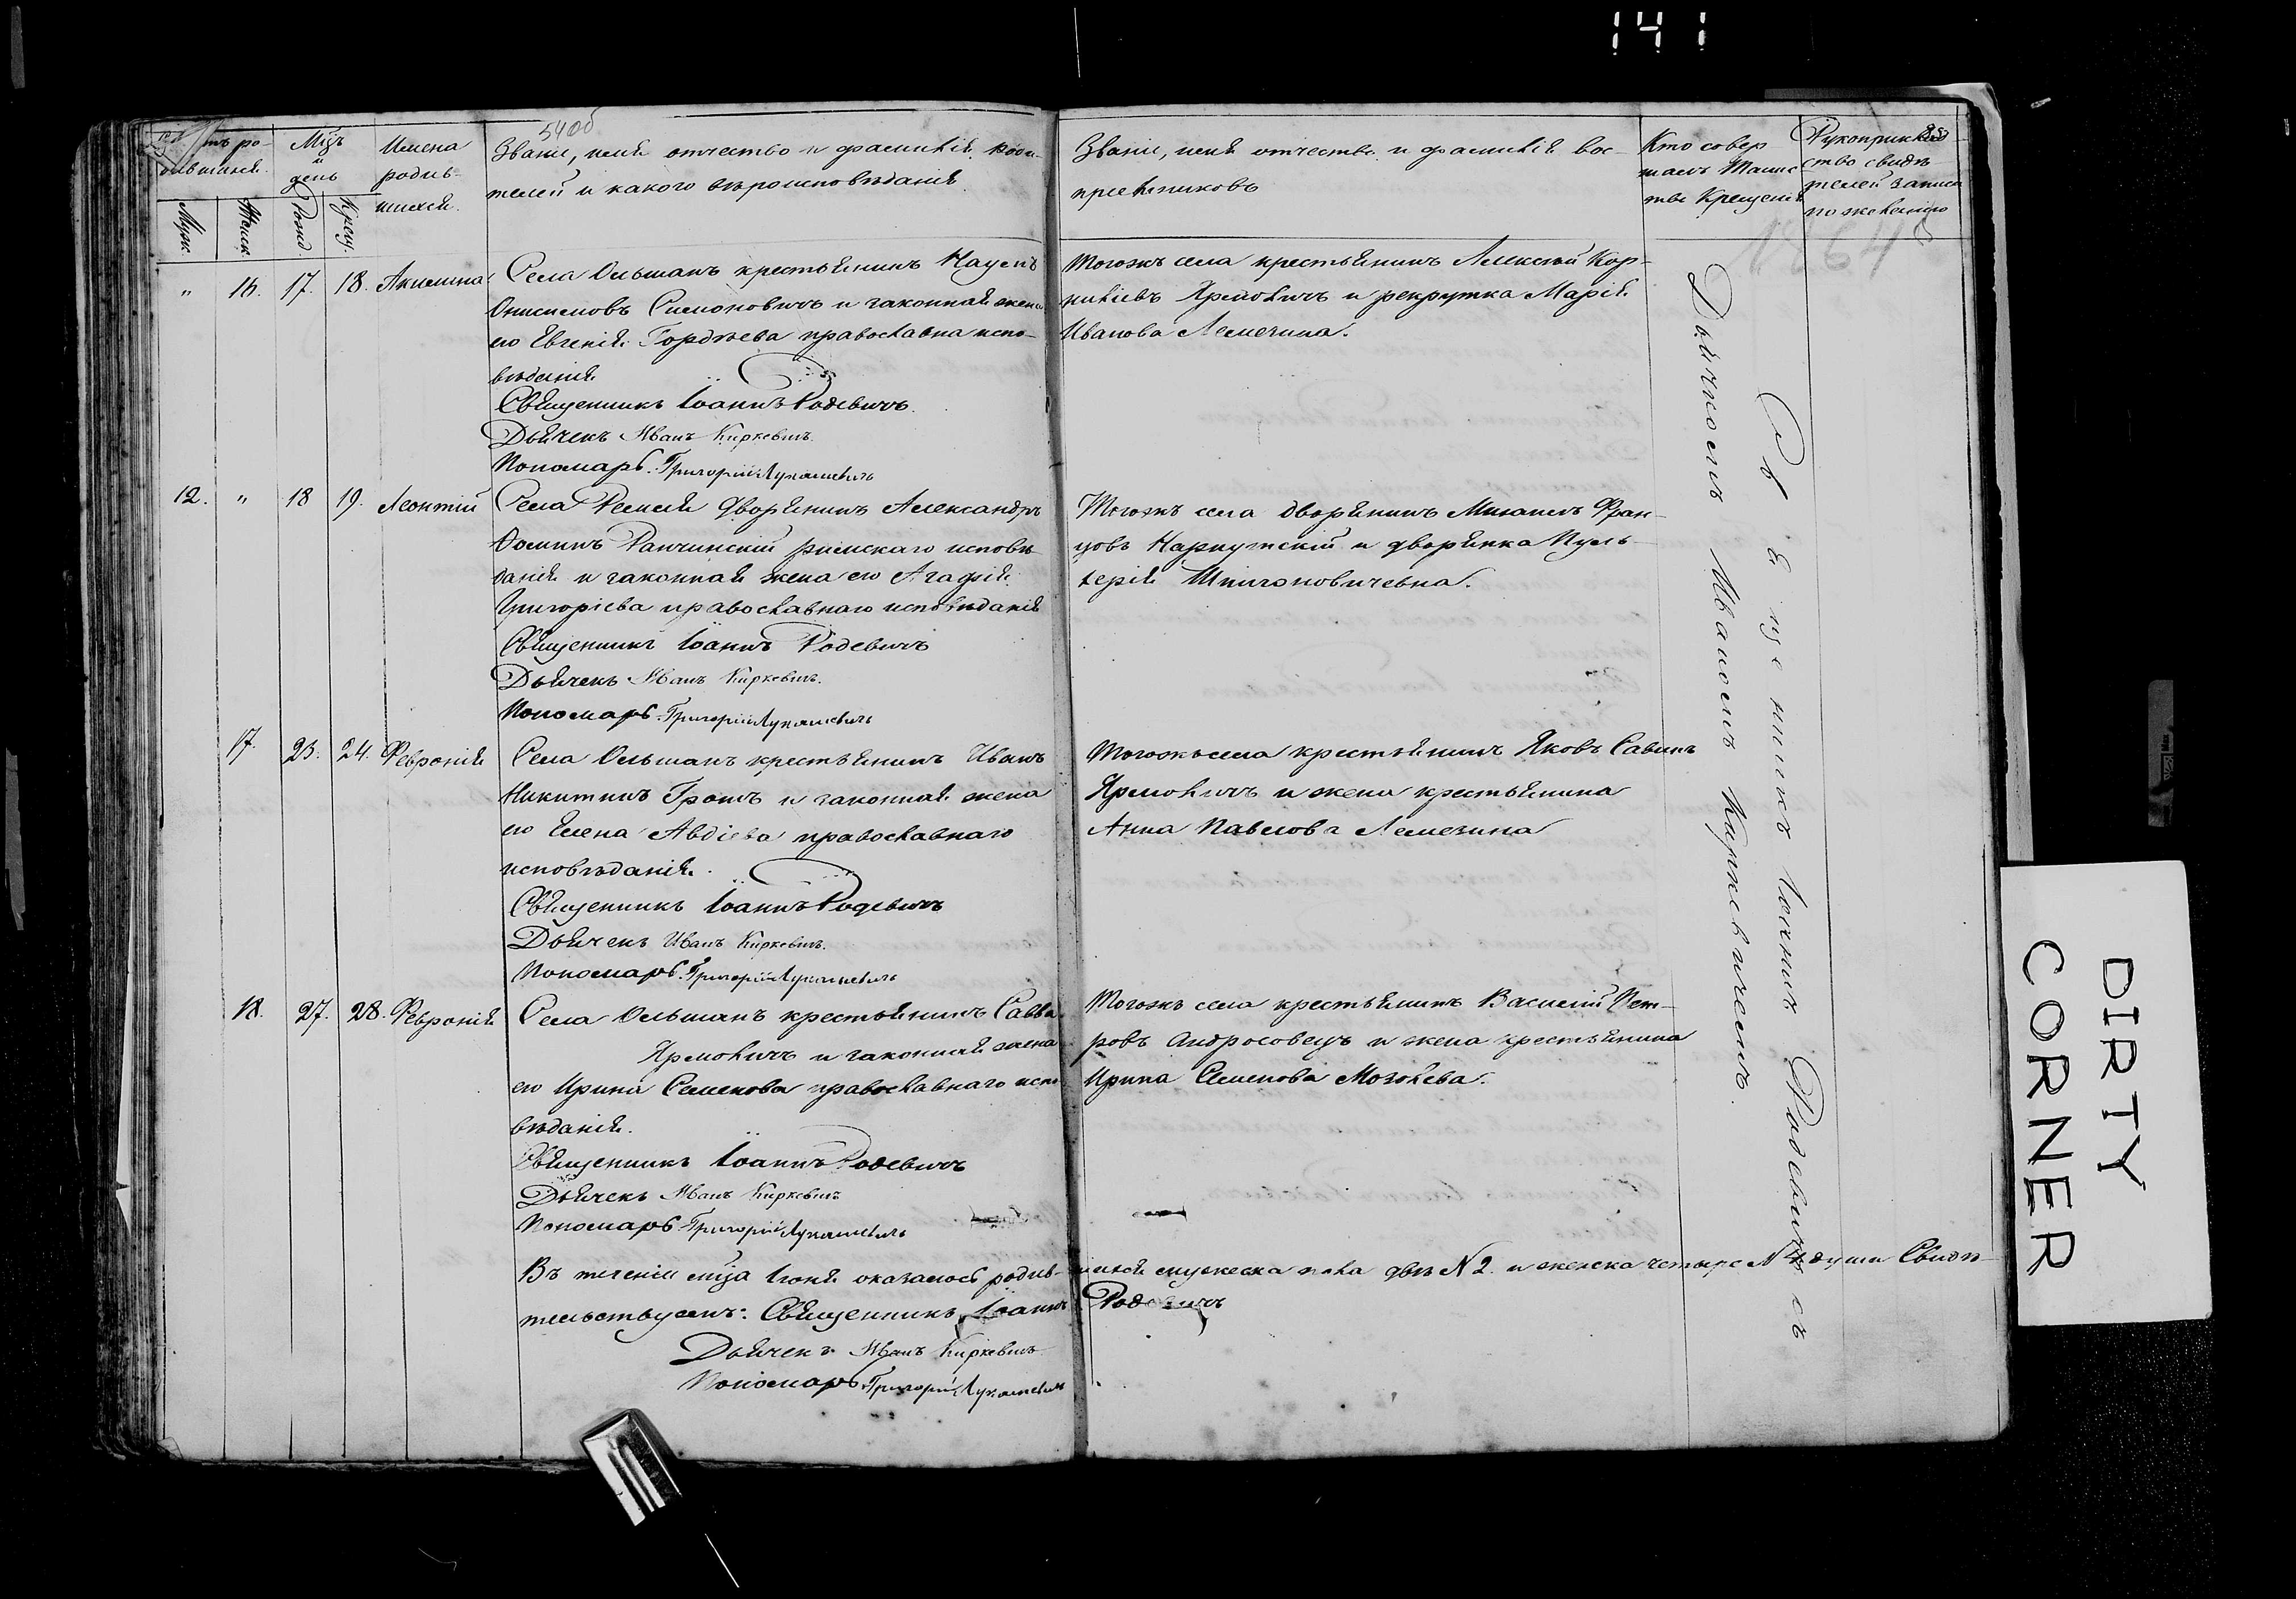 141
54об
Мѣц
и
день
Имена
родив-
шихся.
Звание, имя отчество и фамилія роди-
телей и какого вѣроисповѣданія.
Звание, имя отчество и фамилія вос-
пріемниковъ
Кто совер
шалъ Таинс
тво Крещенія
Рукоприклад
ство свидѣ
телей записи
по желанію
Муж.
Женск.
Рожд.
Крещ.
1864
" 16. 17. 18. Акилина
Села Ольшанъ крестьянинъ Наумъ
Онисимовъ Симоновичъ и законная жена
его Евгенія Гордѣева православна испо-
вѣданія
Священникъ Іоаннъ Родевичъ
Дьячекъ Иванъ Киркевичъ.
Пономарь Григорій Лукашевичъ
Тогожъ села крестьянинъ Алексѣй Кор-
ниліевъ Ярмоличъ и рекрутка Марія
Иванова Лемезина.
12. " 18 19. Леонтій
Села Ремля Дворянинъ Александръ
Фоминъ Ранчинскій римскаго исповѣ-
данія и законная жена его Агафія
Григоріева православнаго исповѣданія
Священникъ Іоаннъ Родевичъ
Дьячекъ Иванъ Киркевичъ.
Пономарь Григорій Лукашевичъ
Тогожъ села дворянинъ Михаилъ Фран-
цовъ и дворянка Пуль-
херія
17. 23. 24. Февронія
Села Ольшанъ крестьянинъ Иванъ
Никитинъ и законная жена
его Елена Авдіева православнаго
исповѣданія.
Священникъ Іоаннъ Родевичъ
Дьячекъ Иванъ Киркевичъ.
Пономарь Григорій Лукашевичъ
Тогожъ села крестьянинъ Яковъ Савинъ
Ярмоличъ и жена крестьянина
Анна Павлова Лемезина
18. 27. 28. Февронія
Села Ольшанъ крестьянинъ Савва
Ярмоличъ и законная жена
его Ирина Семенова православнаго испо
вѣданія.
Священникъ Іоаннъ Родевичъ
Дьячекъ Иванъ Киркевичъ
Пономарь Григорій Лукашевичъ
Тогожъ села крестьянинъ Василій Пет-
ровъ Андросовецъ и жена крестьянина
Ирина Семенова
Священникъ Іоаннъ Родевичъ съ
Дьячкомъ Иваномъ Киркевичемъ.
Въ теченіи мѣца Іюня оказалось родив-шихся мужеска пола двѣ N 2. и женска четыре N 4 души Свидѣ-
тельствуемъ: Священникъ Іоаннъ Родевичъ
Дьячекъ Иванъ Киркевичъ
Пономарь Григорій Лукашевичъ
DIRTY
CORNER